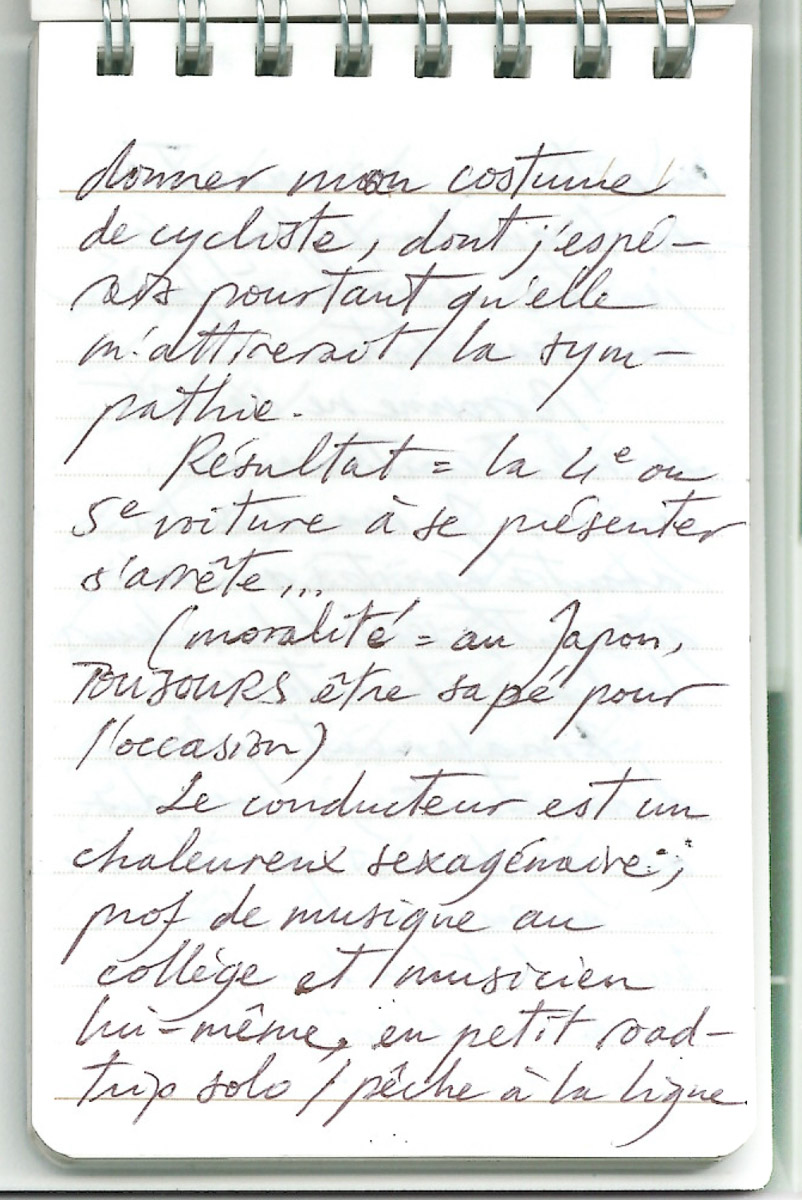 donner mon costume
de cycliste, dont j'espé-
rais pourtant qu'elle
m'attirerait la sym-
pathie.
Résultat = la 4e ou
5e voiture à se présenter
s'arrête...
(moralité = au Japon,
TOUJOURS être sapé pour
l'occasion)
Le conducteur est un
chaleureux sexagénaire ;
prof de musique au
collège et musicien
lui-même, en petit road-
trip solo / pêche à la ligne